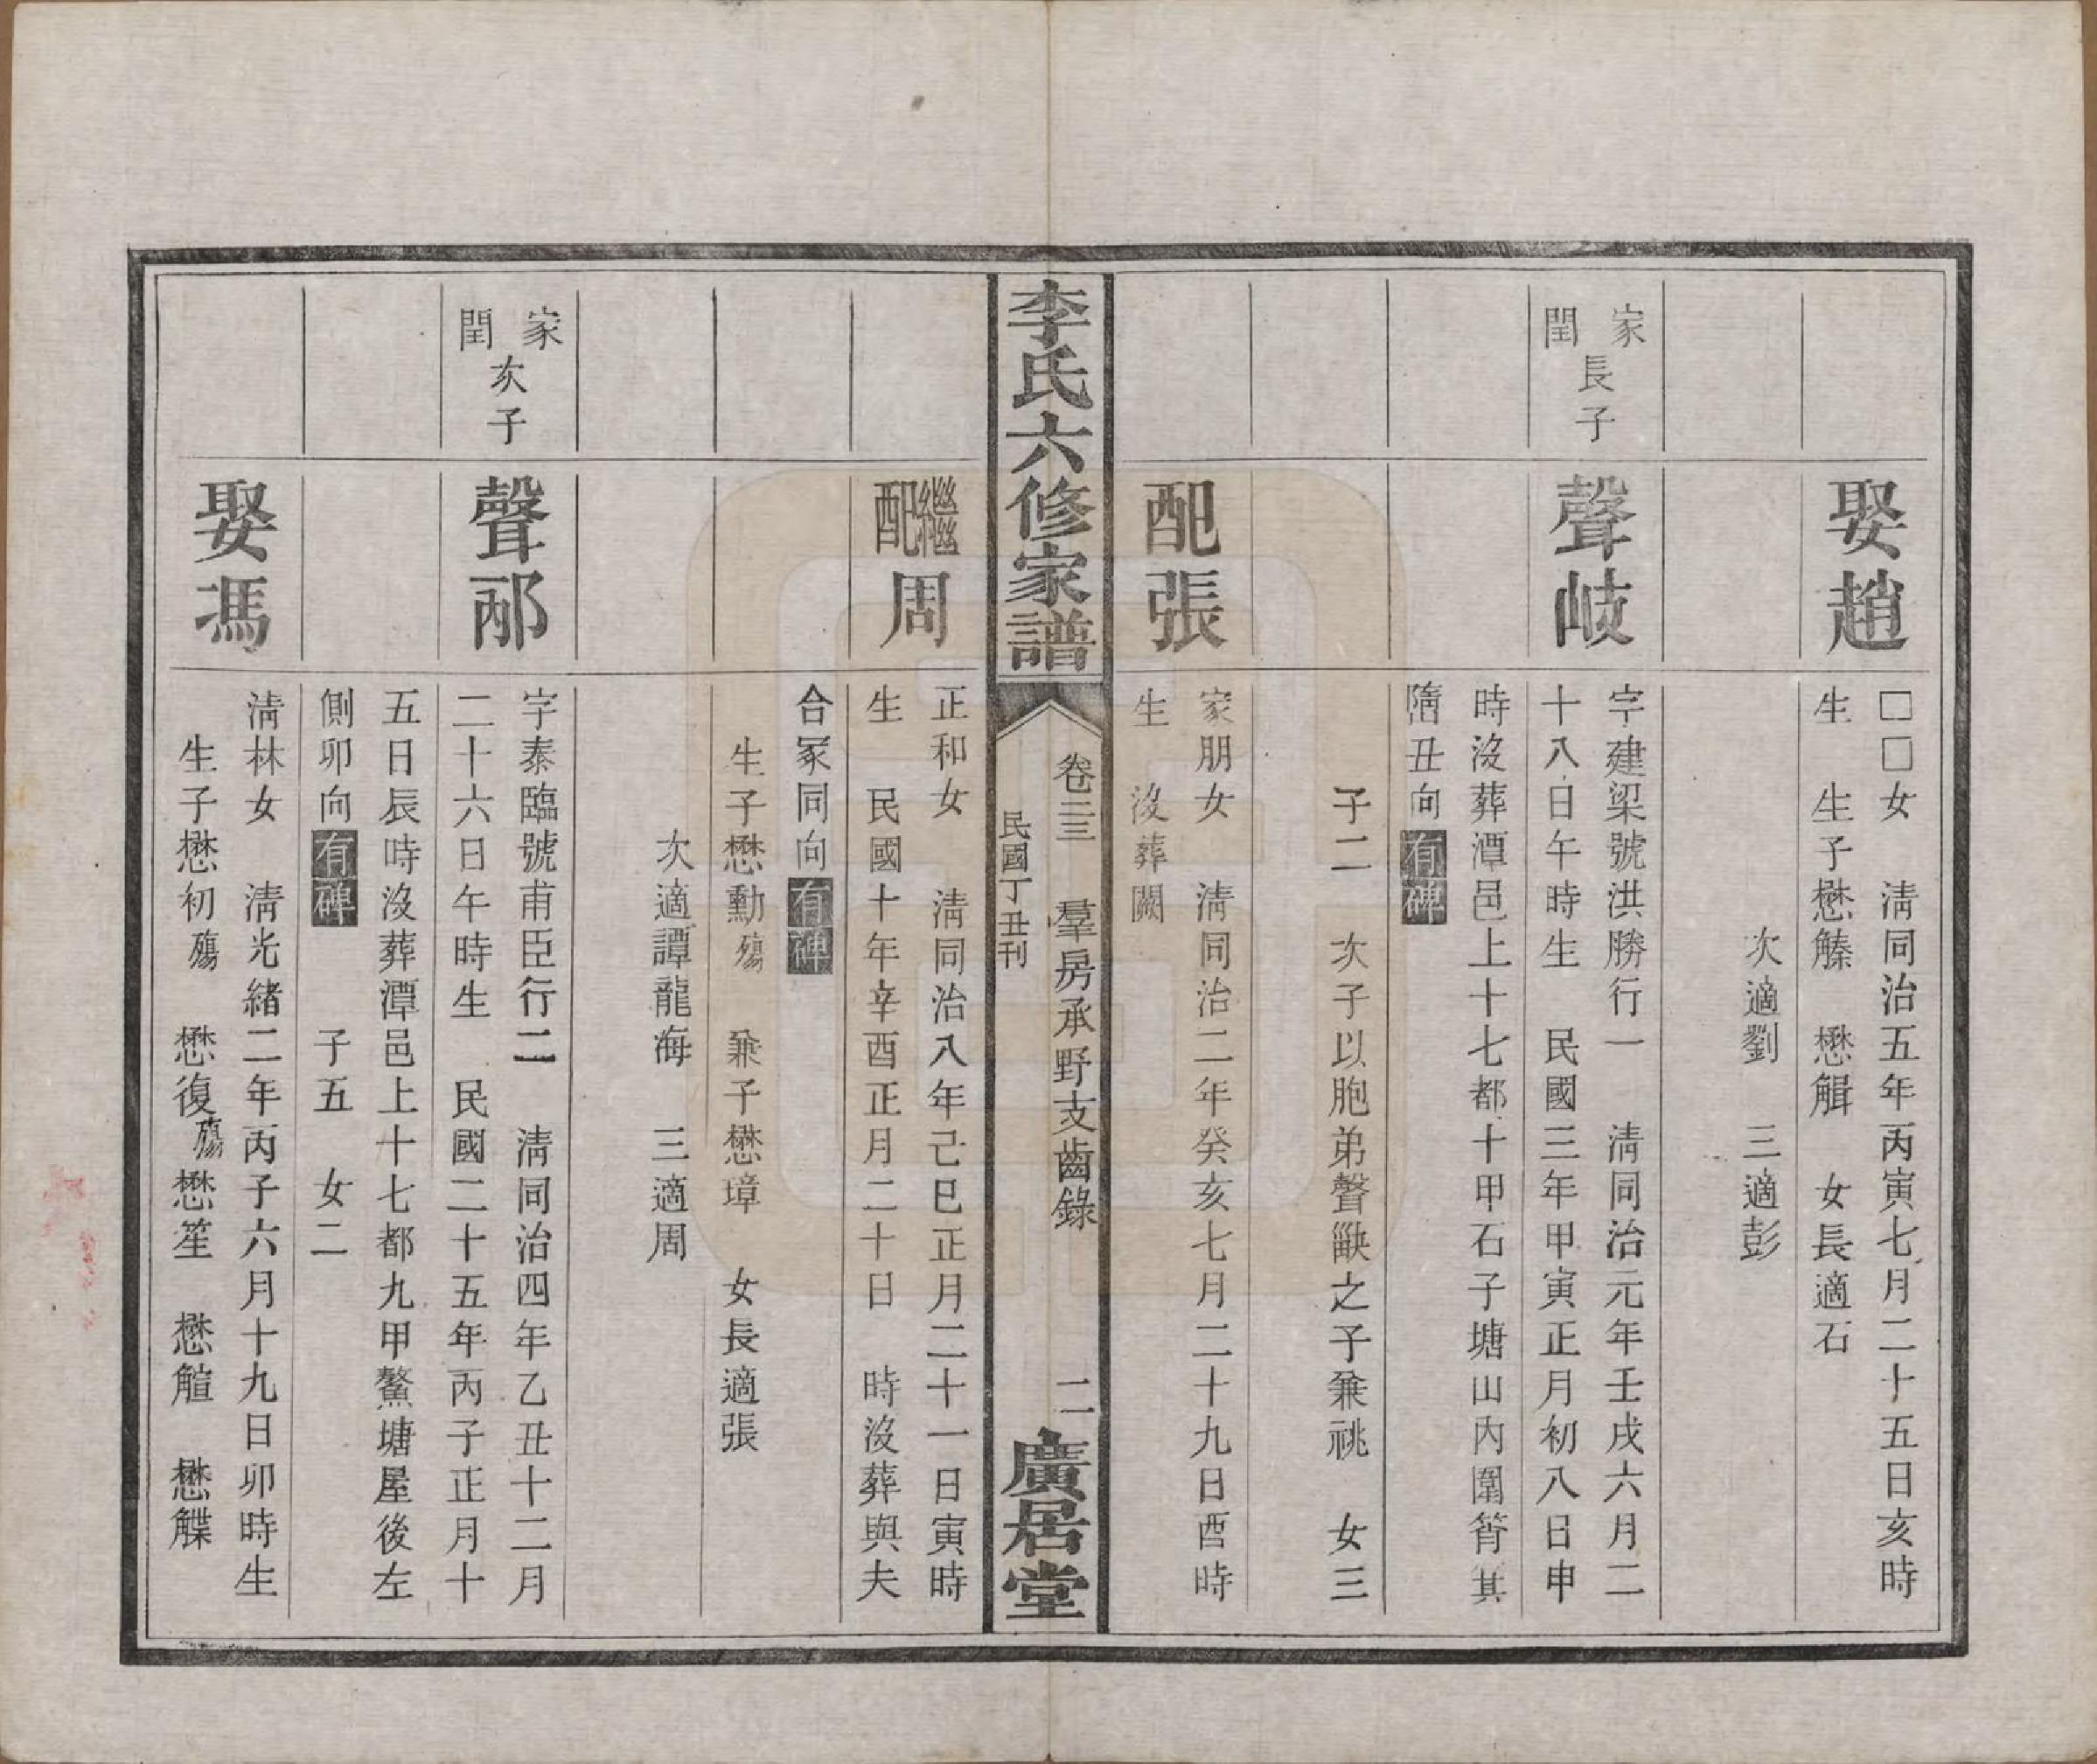 娶趙
□□女　淸同治五年丙寅七月二十五日亥時
生　生子懋𧤛　懋觮　女長適石
次適劉　三適彭
家閏長子
聲岐
字建梁號洪勝行一　淸同治元年壬戌六月二
十八日午時生　民國三年甲寅正月初八日申
時沒葬潭邑上十七都十甲石子塘山內圍筲其
隋丑向有碑
子二　次子以胞弟聲𨞺之子兼祧　女三
配張
家朋女　淸同治二年癸亥七月二十九日酉時
生　沒葬闕
李氏六修家譜
卷三三　羣房承野支齒錄　二
民國丁丑刊
廣居堂
繼配周
正和女　淸同治八年己巳正月二十一日寅時
生　民國十年辛酉正月二十日　時沒葬與夫
合冢同向有碑
生子懋勳殤　兼子懋璋　女長適張
次適譚龍海　三適周
家閏次子
聲邴
字泰臨號甫臣行二　淸同治四年乙丑十二月
二十六日午時生　民國二十五年丙子正月十
五日辰時沒葬潭邑上十七都九甲鰲塘屋後左
側卯向有碑　子五　女二
娶馮
淸林女　淸光緒二年丙子六月十九日卯時生
生子懋初殤　懋復殤　懋笙　懋觛　懋觽